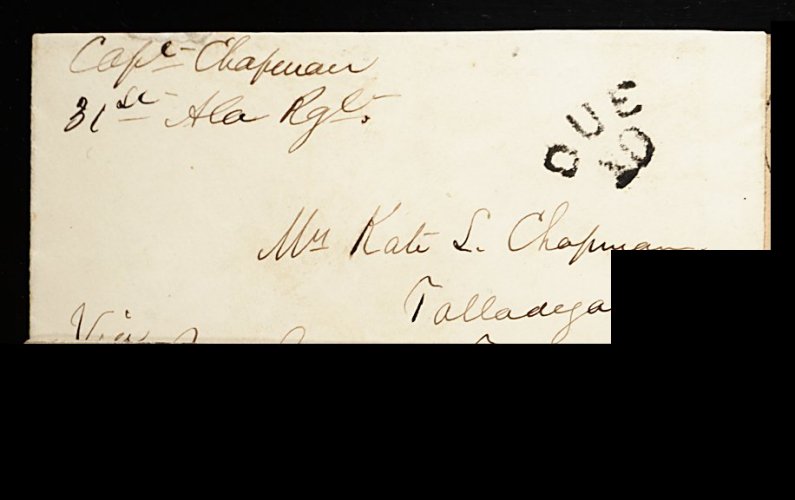 Capt Chapman
31st Ala Rgt.
DUE
10
Mrs Kate L. Chapman
Talladega
Via